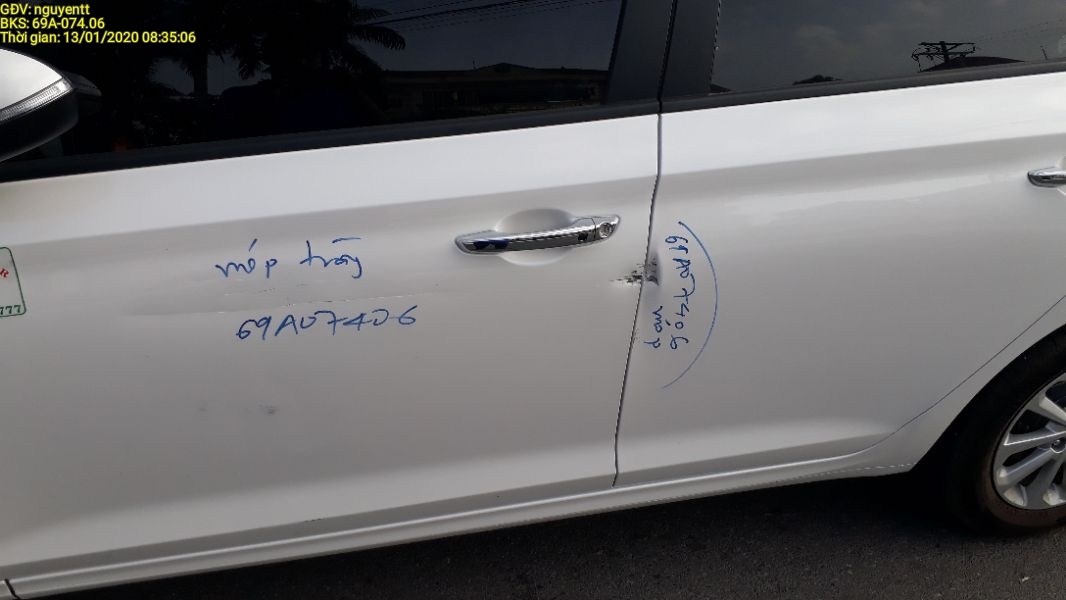 GĐV: nguyentt
BKS: 69A-074.06
Thời gian: 13/01/2020 08:35:06
móp trầy
69A07406
69A07406
móp
777